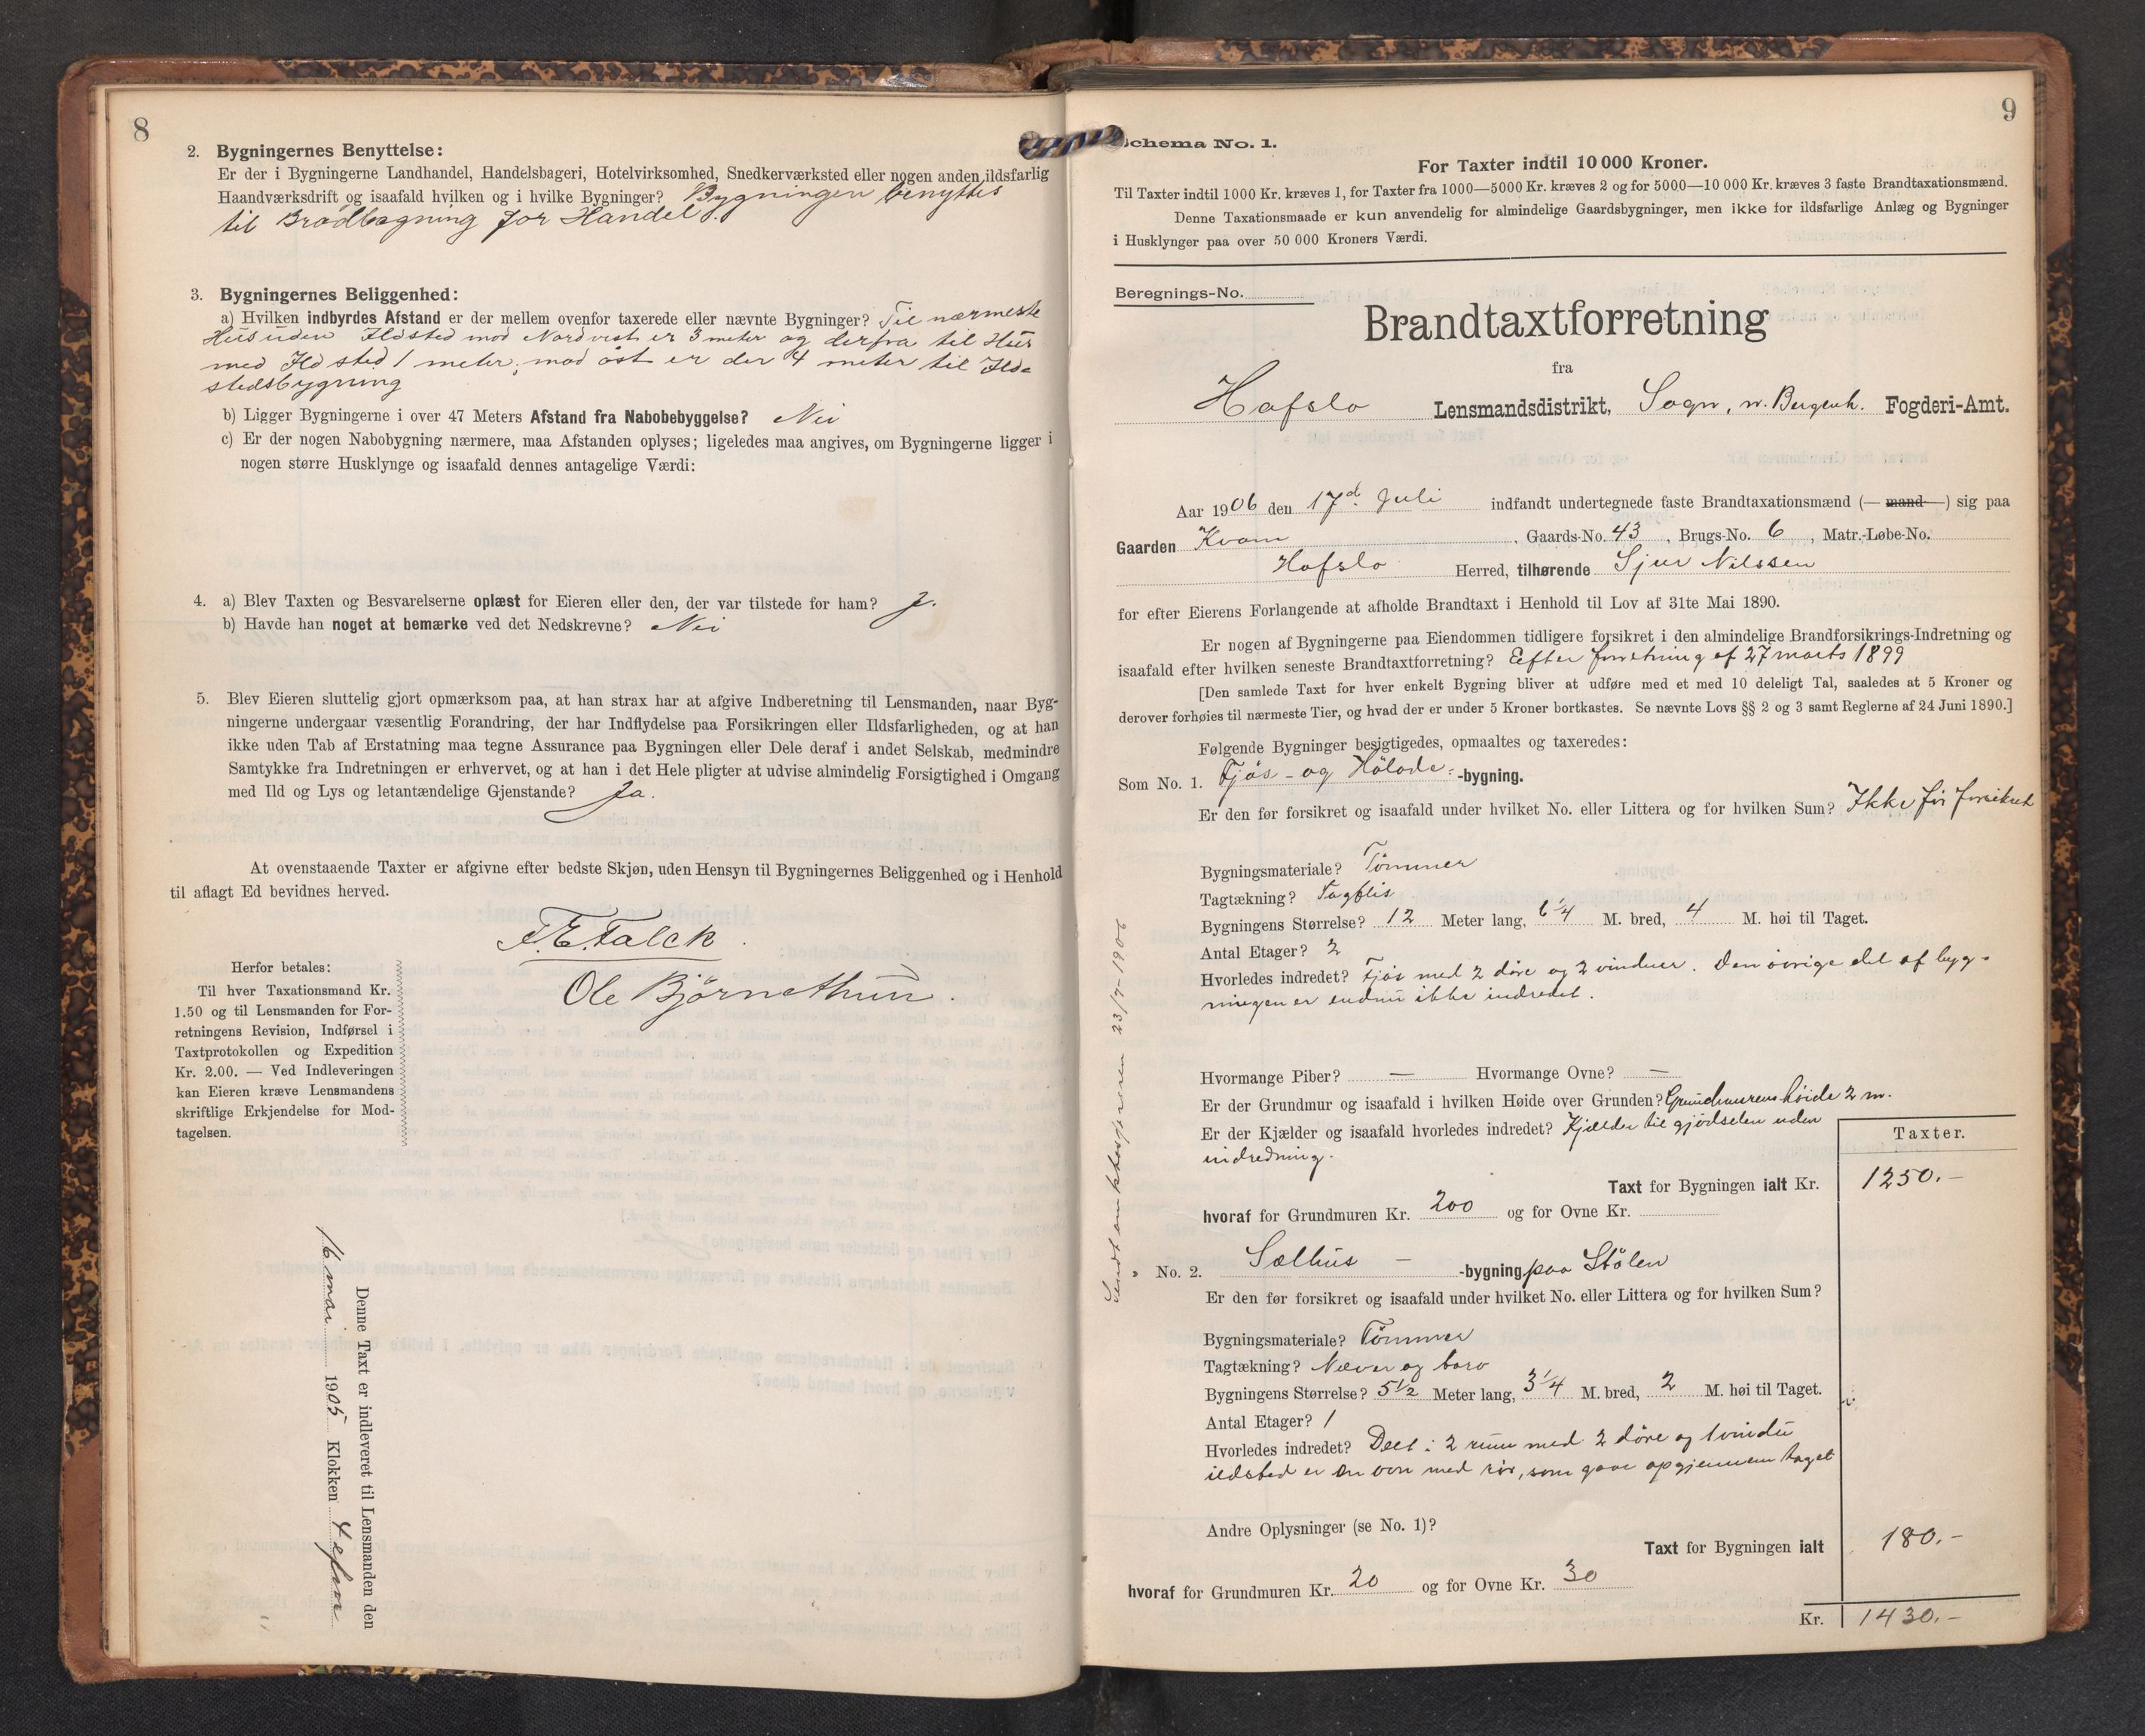 8
2. Bygningernes Benyttelse:
Er der i Bygningerne Landhandel, Handelsbageri, Hotelvirksomhed, Snedkerværksted eller nogen anden ildsfarlig
Haandværksdrift og isaafald hvilken og i hvilke Bygninger? Bygningen benyttes
til Brødbagning for Handel.
3. Bygningernes Beliggenhed:
a) Hvilken indbyrdes Afstand er der mellem ovenfor taxerede eller nævnte Bygninger? Til nærmeste
Hus uden Ildsted mod Nordvest er 3 meter og derfra til Hus
med Ildsted 1 meter, mod øst er der 4 meter til Ild-
stedsbygning
b) Ligger Bygningerne i over 47 Meters Afstand fra Nabobebyggelse? Nei
c) Er der nogen Nabobygning nærmere, maa Afstanden oplyses; ligeledes maa angives, om Bygningerne ligger i
nogen større Husklynge og isaafald dennes antagelige Værdi:
4. a) Blev Taxten og Besvarelserne oplæst for Eieren eller den, der var tilstede for ham? J.
b) Havde han noget at bemærke ved det Nedskrevne? Nei
5. Blev Eieren sluttelig gjort opmærksom paa, at han strax har at afgive Indberetning til Lensmanden, naar Byg-
ningerne undergaar væsentlig Forandring, der har Indflydelse paa Forsikringen eller Ildsfarligheden, og at han
ikke uden Tab af Erstatning maa tegne Assurance paa Bygningen eller Dele deraf i andet Selskab, medmindre
Samtykke fra Indretningen er erhvervet, og at han i det Hele pligter at udvise almindelig Forsigtighed i Omgang
med Ild og Lys og letantændelige Gjenstande? Ja.
At ovenstaaende Taxter er afgivne efter bedste Skjøn, uden Hensyn til Bygningernes Beliggenhed og i Henhold
til aflagt Ed bevidnes herved.
T.E.Falck.
Ole Bjørnethun.
Herfor betales:
Til hver Taxationsmand Kr.
1.50 og til Lensmanden for For-
retningens Revision, Indførsel i
Taxtprotokollen og Expedition
Kr. 2.00. — Ved Indleveringen
kan Eieren kræve Lensmandens
skriftlige Erkjendelse for Mod-
tagelsen.
Denne Taxt er indleveret til Lensmanden den
16 mai 1905 Klokken 4 efm
9
Schema No. 1.
For Taxter indtil 10 000 Kroner.
Til Taxter indtil 1000 Kr. kræves 1, for Taxter fra 1000—5000 Kr. kræves 2 og for 5000—10 000 Kr. kræves 3 faste Brandtaxationsmænd.
Denne Taxationsmaade er kun anvendelig for almindelige Gaardsbygninger, men ikke for ildsfarlige Anlæg og Bygninger
i Husklynger paa over 50 000 Kroners Værdi.
Beregnings-No.
Brandtaxtforretning
fra
Hafslo Lensmandsdistrikt, Sogn, n. Bergenh. Fogderi-Amt.
Aar 1906 den 17d. Juli indfandt undertegnede faste Brandtaxationsmænd (— mand —) sig paa
Gaarden Kvam, Gaards-No. 43, Brugs-No. 6, Matr.-Løbe-No.
Hafslo Herred, tilhørende Sjur Nilssen
for efter Eierens Forlangende at afholde Brandtaxt i Henhold til Lov af 31te Mai 1890.
Er nogen af Bygningerne paa Eiendommen tidligere forsikret i den almindelige Brandforsikrings-Indretning og
isaafald efter hvilken seneste Brandtaxtforretning? Eefter forretning af 27 marts 1899
[Den samlede Taxt for hver enkelt Bygning bliver at udføre med et med 10 deleligt Tal, saaledes at 5 Kroner og
derover forhøies til nærmeste Tier, og hvad der er under 5 Kroner bortkastes. Se nævnte Lovs §§ 2 og 3 samt Reglerne af 24 Juni 1890.]
Følgende Bygninger besigtigedes, opmaaltes og taxeredes:
Som No. 1. Fjøs- og Hølade- -bygning.
Er den før forsikret og isaafald under hvilket No. eller Littera og for hvilken Sum? Ikke før forsikret
Bygningsmateriale? Tømmer
Tagtækning? Tagflis
Bygningens Størrelse? 12 Meter lang, 6 1/4 M. bred, 4 M. høi til Taget.
Antal Etager? 2
Hvorledes indredet? Fjøs med 2 døre og 2 vinduer. Den øvrige del af byg-
ningen er endnu ikke indredet.
Hvormange Piber? — Hvormange Ovne? —
Er der Grundmur og isaafald i hvilken Høide over Grunden? Grundmurens høide 2 m.
Er der Kjælder og isaafald hvorledes indredet? Kjælder til gjødselen uden
indredning.
Taxter.
Taxt for Bygningen ialt Kr. 1250.-
hvoraf for Grundmuren Kr. 200 og for Ovne Kr.
" No. 2. Sælhus - -bygning paa Stølen
Er den før forsikret og isaafald under hvilket No. eller Littera og for hvilken Sum?
Bygningsmateriale? Tømmer
Tagtækning? Næver og torv
Bygningens Størrelse? 5 1/2 Meter lang, 3 1/4 M. bred, 2 M. høi til Taget.
Antal Etager? 1
Hvorledes indredet? Deelt i 2 rum med 2 døre og 1 vindu
ildsted er en ovn med rør, som gaar op gjennem taget
Andre Oplysninger (se No. 1)?
Taxt for Bygningen ialt 180.-
hvoraf for Grundmuren Kr. 20 og for Ovne Kr. 30
Kr. 1430.-
23/7-1906